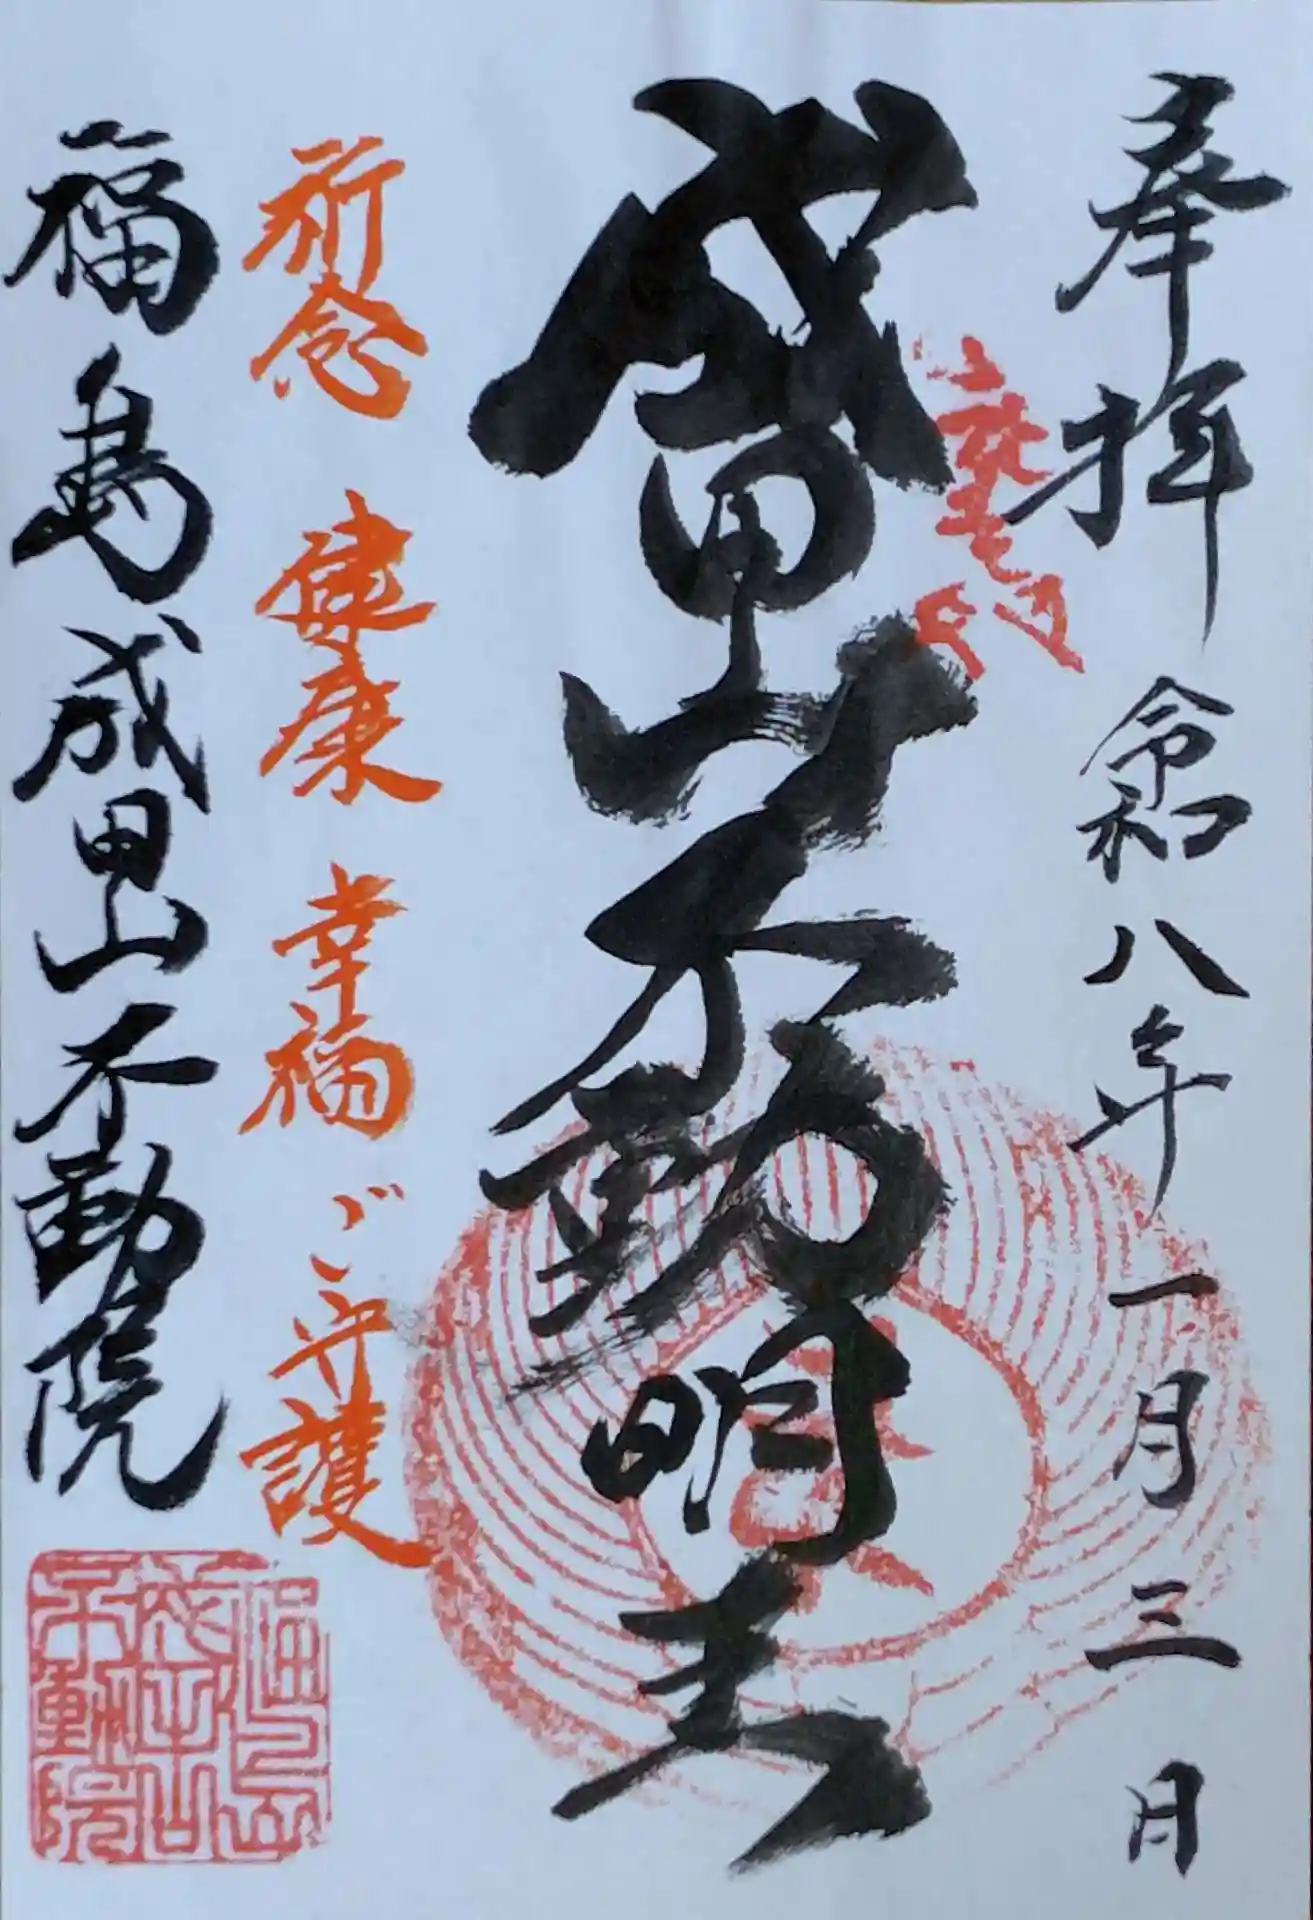 奉拝 令和八年一月三日
成田山不動明王
祈念 健康 幸福 ご守護
福島成田山不動院